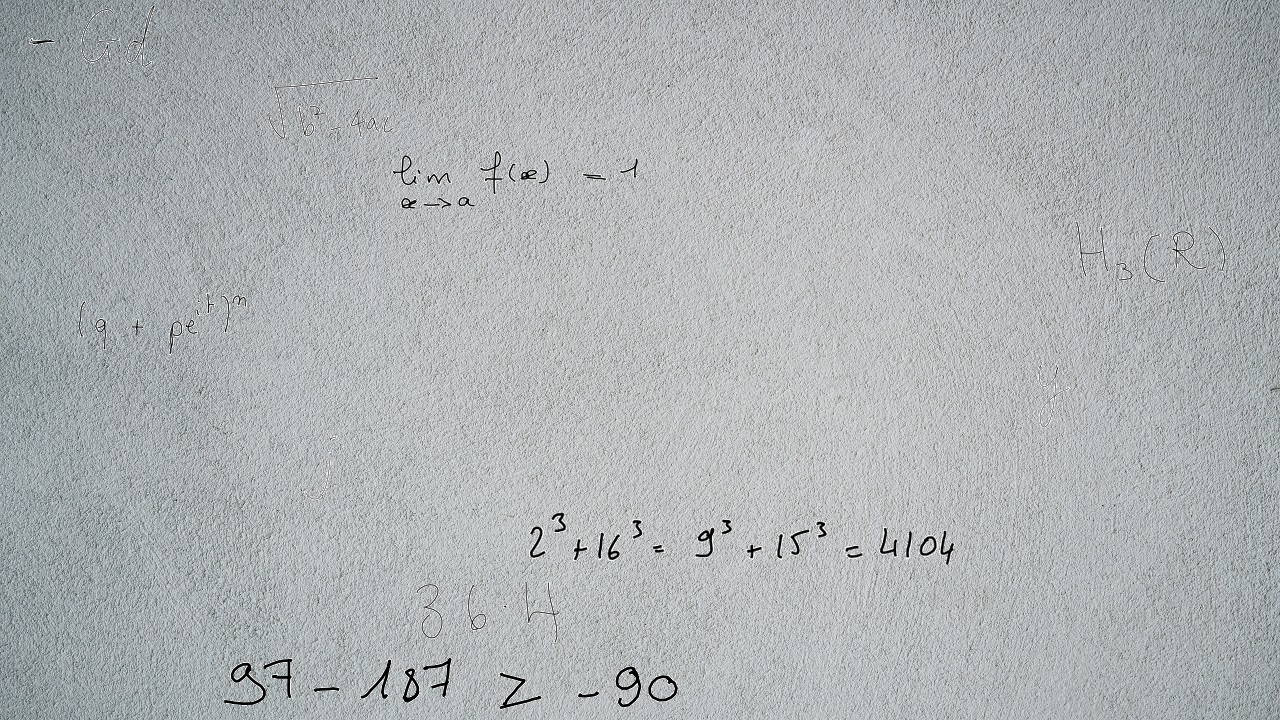 - Gd
√b² - 4ac
lim f(x) = 1
x → a
H₃(R)
(q + pe^it)^n
y
j
2³ + 16³ = 9³ + 15³ = 4104
36.4
97 - 187 ≥ -90